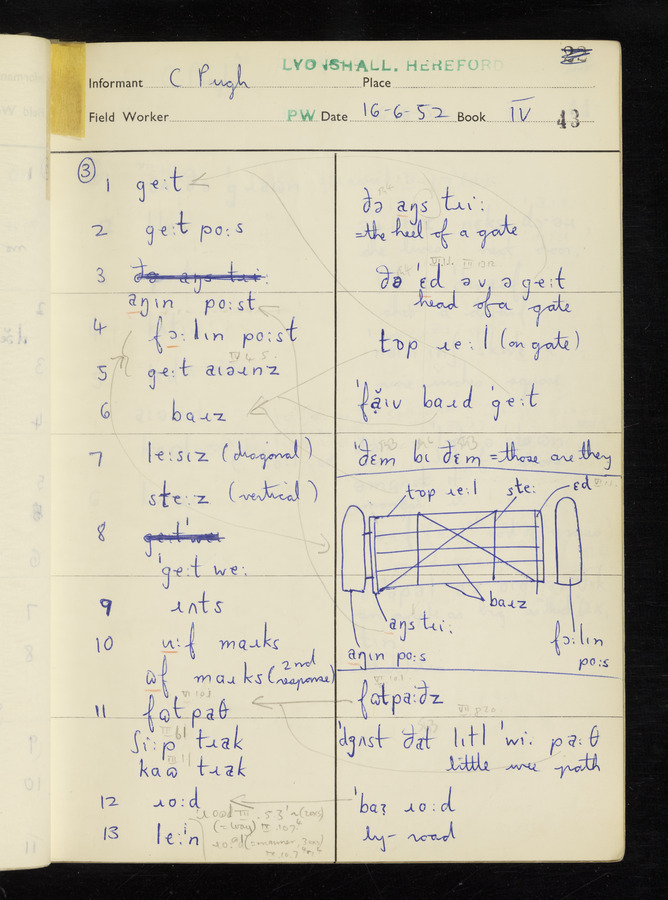 LYONSHALL, HEREFORD
Informant C Pugh Place
Field Worker PW Date 16-6-52 Book IV 43
③
1 ge:t
2 ge:t po:s
3
aŋɪn po:st
4 fɔ:lɪn po:st
5 ge:t aɪəɹnz
6 baɹz
7 le:sɪz (diagonal)
ste:z (vertical)
8
'ge:t we:
9 ɹʌts
10 ɹu:f maɹks
ɷf maɹks (2nd response)
11 fɷt paθ
ʃi:p tɹak
kaɷ tɹak
12 ɹo:d
13 le:n
ðə aŋs tɹi:
=the heel of a gate
ðə 'ɛd əv ə ge:t
head of a gate
tɒp ɹe:l (on gate)
'fạ̈ɪv baɹd 'ge:t
'ðɛm bɪ ðɛm = those are they
tɒp ɹe:l
ste:
ɛd
baɹz
aŋs tɹi:
aŋɪn po:s
fɔ:lɪn
po:s
fɷtpa:ðz
'dʒʌst ðat lɪtl 'wi: pa:θ
little wee path
'baɪ ɹo:d
by-road